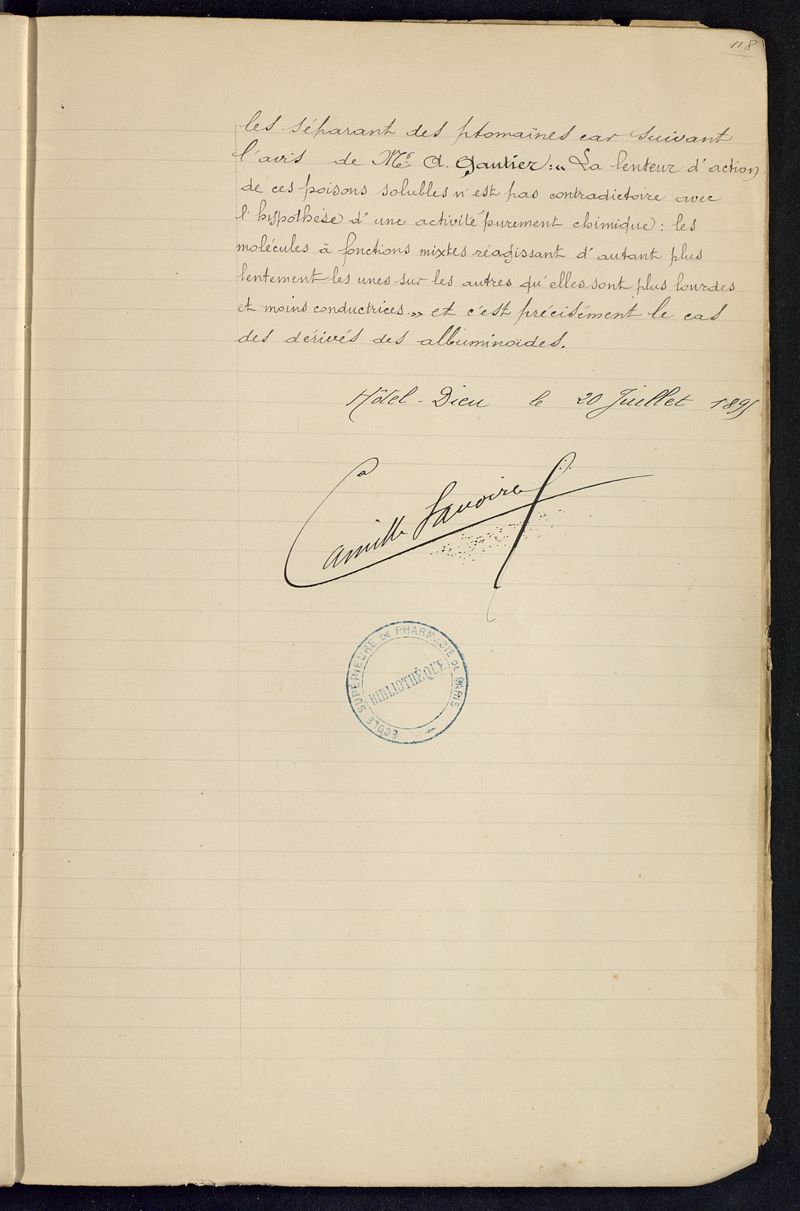 118
les séparant des ptomaïnes car suivant
l'avis de Mr A. Gautier: « La lenteur d'action
de ces poisons solubles n'est pas contradictoire avec
l'hypothèse d'une activité purement chimique : les
molécules à fonctions mixtes réagissant d'autant plus
lentement les unes sur les autres qu'elles sont plus lourdes
et moins conductrices » et c'est précisément le cas
des dérivés des albuminoïdes.
Hôtel-Dieu le 20 Juillet 1895
Camille Savoire
ÉCOLE SUPÉRIEURE DE PHARMACIE DE PARIS
BIBLIOTHÈQUE